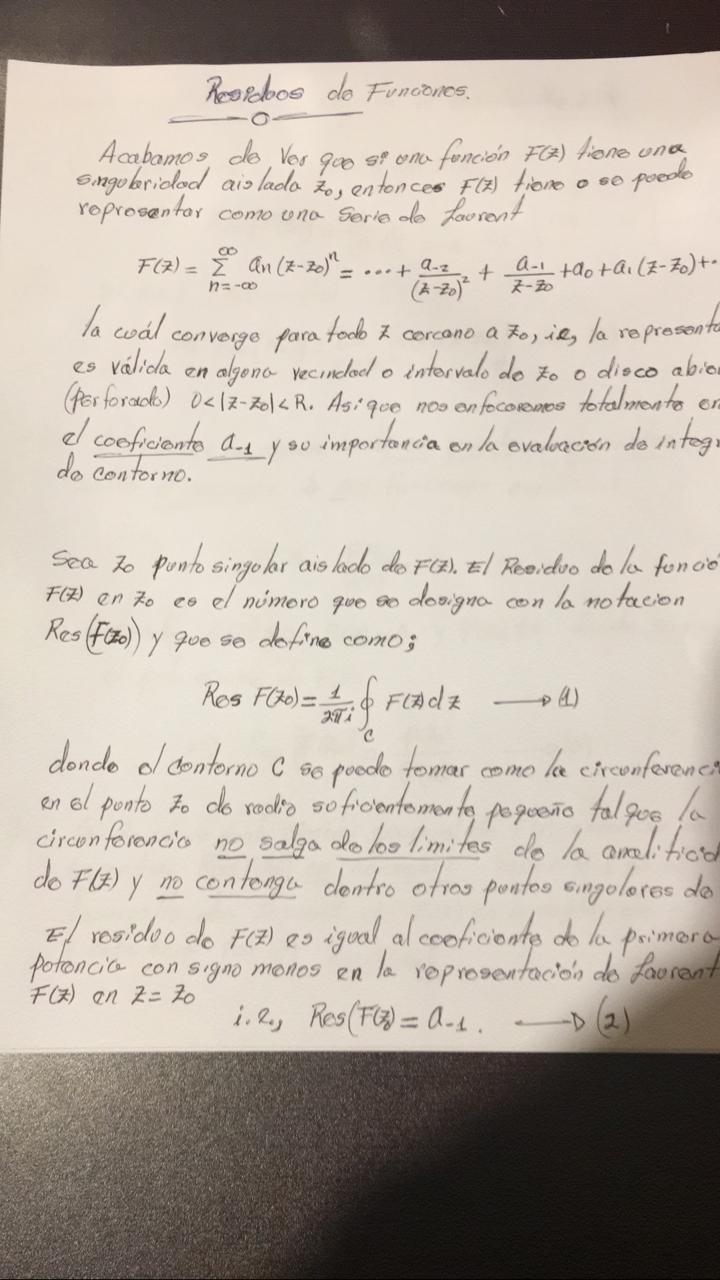 Residuos de Funciones.
Acabamos de Ver que si una función F(z) tiene una
singularidad aislada z₀, entonces F(z) tiene o se puede
representar como una Serie de Laurent
F(z) = ∑_{n=-∞}^{∞} an (z-z₀)^n = ... + a₋₂/(z-z₀)² + a₋₁/(z-z₀) + a₀ + a₁ (z-z₀) + ..
la cuál converge para todo z cercano a z₀, i.e, la represent
es válida en alguna vecindad o intervalo de z₀ o disco abie
(perforado) 0<|z-z₀|<R. Así que nos enfocaremos totalmente en
el coeficiente a₋₁ y su importancia en la evaluación de integ
de contorno.
Sea z₀ punto singular aislado de F(z). El Residuo de la funció
F(z) en z₀ es el número que se designa con la notacion
Res(F(z₀)) y que se define como;
Res F(z₀) = 1/2πi ∮_C F(z)dz → (1)
donde el contorno C se puede tomar como la circunferenci
en el punto z₀ de radio suficientemente pequeño tal que la
circunferencia no salga de los limites de la analiticid
de F(z) y no contenga dentro otros puntos singulares de
El residuo de F(z) es igual al coeficiente de la primera
potencia con signo menos en la representación de Laurent
F(z) en z = z₀
i.e., Res(F(z₀) = a₋₁. → (2)